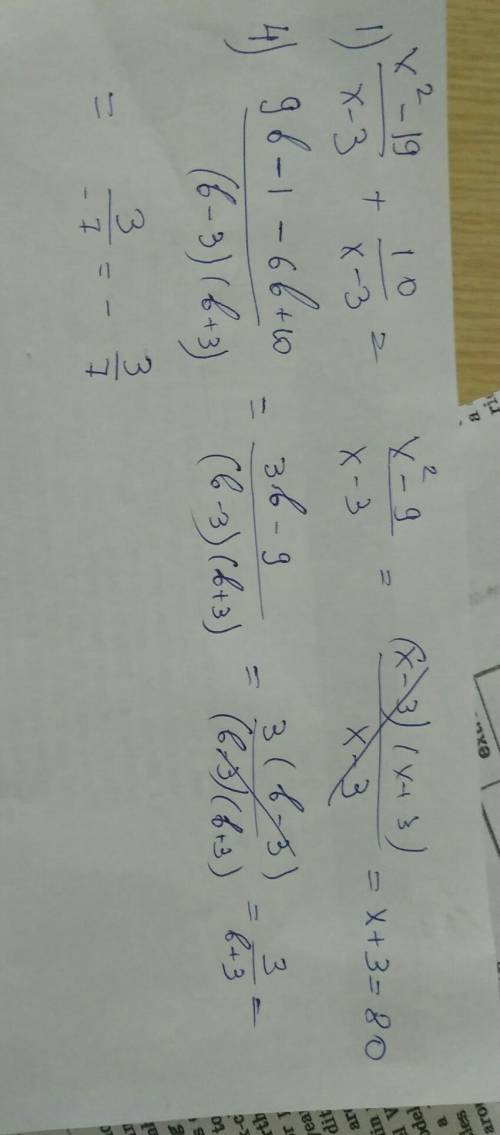 1) x²-19/x-3 + 10/x-3 = x²-9/x-3 = (x-3)(x+3)/x-3 = x+3 = 80
4) 9b-1-6b+10/(b-3)(b+3) = 3b-9/(b-3)(b+3) = 3(b-3)/(b-3)(b+3) = 3/b+3 =
= 3/-7 = -3/7